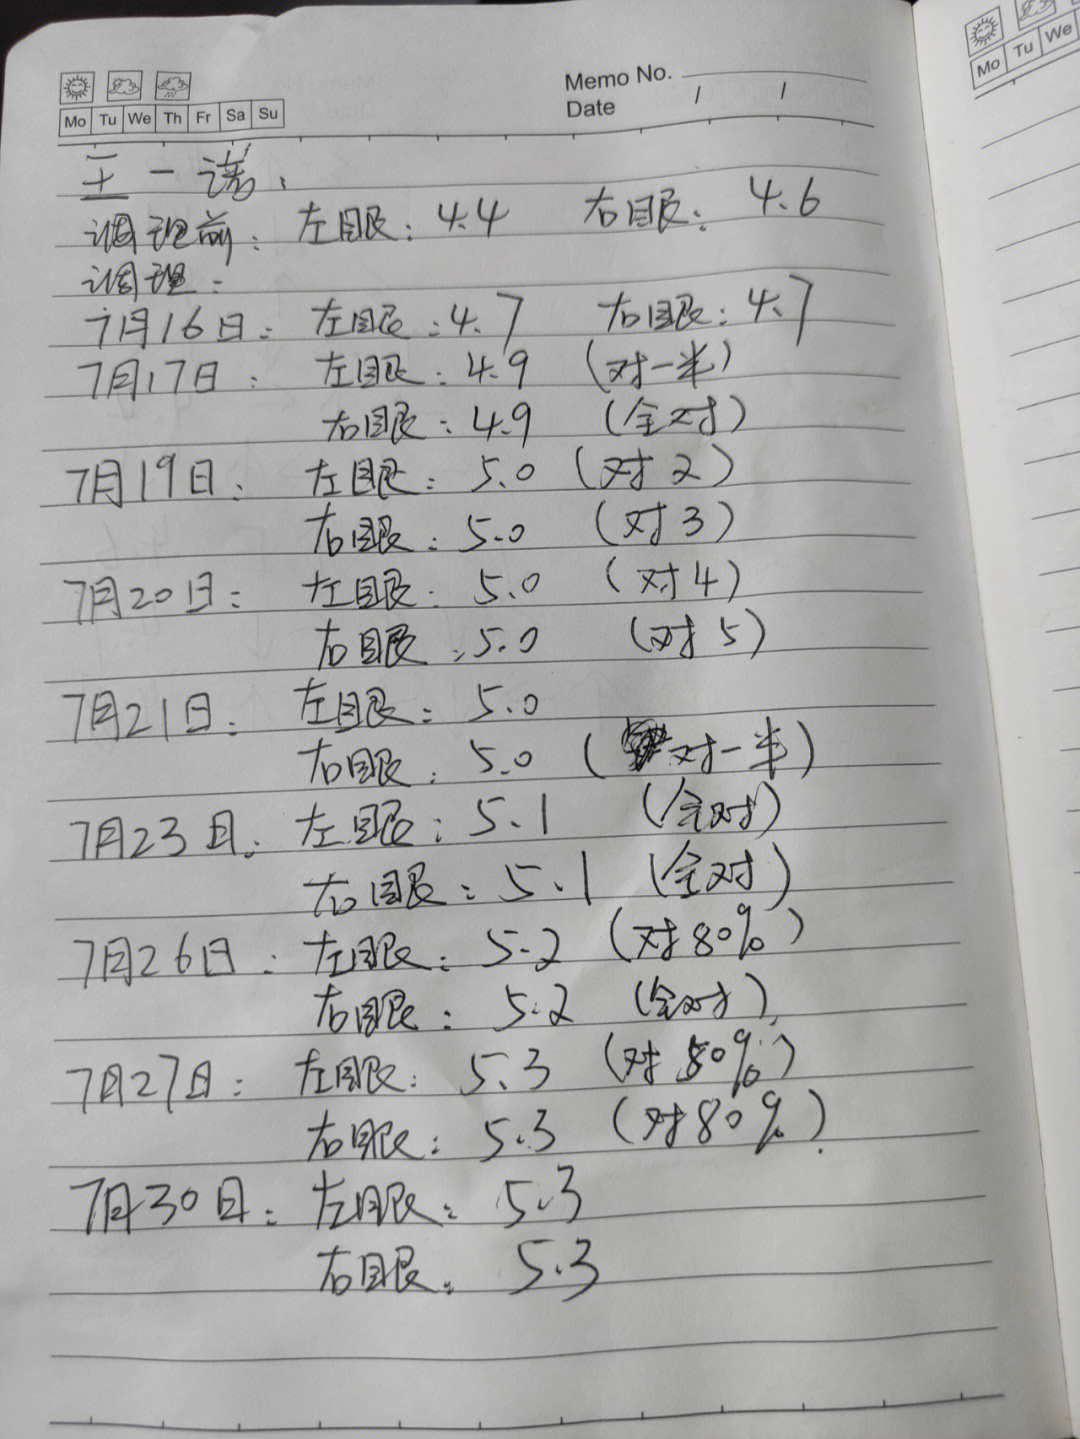 Memo No.
Date / /
Mo Tu We Th Fr Sa Su
Mo Tu We
王一诺：
调理前：左眼：4.4 右眼：4.6
调理：
7月16日：左眼：4.7 右眼：4.7
7月17日：左眼：4.9 （对一半）
右眼：4.9 （全对）
7月19日：左眼：5.0 （对2）
右眼：5.0 （对3）
7月20日：左眼：5.0 （对4）
右眼：5.0 （对5）
7月21日：左眼：5.0
右眼：5.0 （对一半）
7月23日：左眼：5.1 （全对）
右眼：5.1 （全对）
7月26日：左眼：5.2 （对80%）
右眼：5.2 （全对）
7月27日：左眼：5.3 （对50%）
右眼：5.3 （对80%）
7月30日：左眼：5.3
右眼：5.3